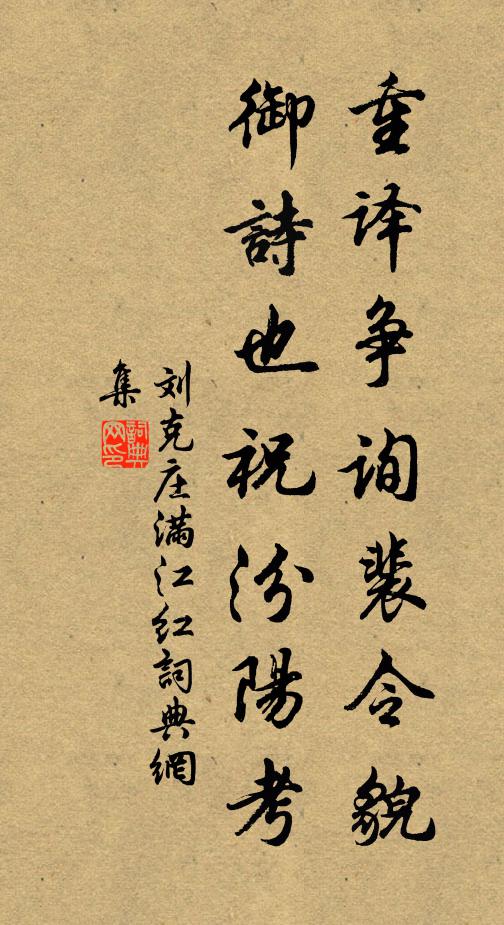 重译争询裴令貌
御詩也祝汾陽考
刘克庄满江红詞典網
集
詞典
网印